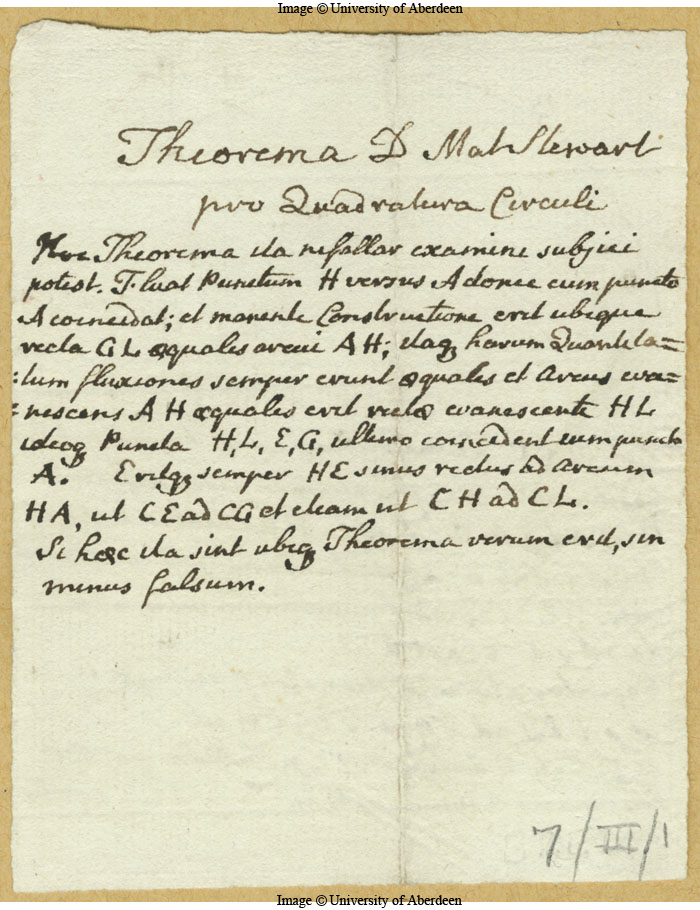 Image © University of Aberdeen
Theorema D Mat Stewart
pro Quadratura Circuli
Hoc Theorema ita ni fallar examini subjici
potest. Fluat Punctum H versus A donec cum puncto
A coincidat; et manente Constructione erit ubique
recta GL æqualis arcui AH; itaqꝫ harum Quantita=
=tum fluxiones semper erunt æquales et Arcus eva=
=nescens AH æqualis erit rectæ evanescenti HL
ideoqꝫ Puncta H, L, E, G, ultimo coincident cum puncto
A. Eritqꝫ semper HE sinus rectus ad Arcum
HA, ut CE ad CG et etiam ut CH ad CL.
Si hæc ita sint ubiqꝫ Theorema verum erit, sin
minus falsum.
7/III/1
Image © University of Aberdeen